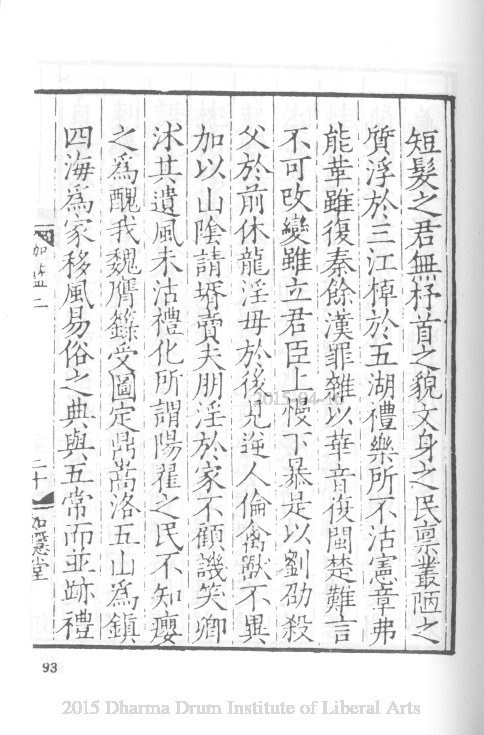 短髮之君無杼首之貌文身之民稟叢陋之
質浮於三江棹於五湖禮樂所不沽憲章弗
能革雖復秦餘漢罪雜以華音復閩楚難言
不可改變雖立君臣上慢下暴是以劉劭殺
父於前休龍淫母於後見逆人倫禽獸不異
加以山陰請壻賣夫朋淫於家不顧譏笑卿
沐其遺風未沾禮化所謂陽翟之民不知癭
之為醜我魏膺籙受圖定鼎嵩洛五山為鎮
四海為家移風易俗之典與五常而並跡禮
伽藍二
二十
如隱堂
2015-04-16
93
2015 Dharma Drum Institute of Liberal Arts